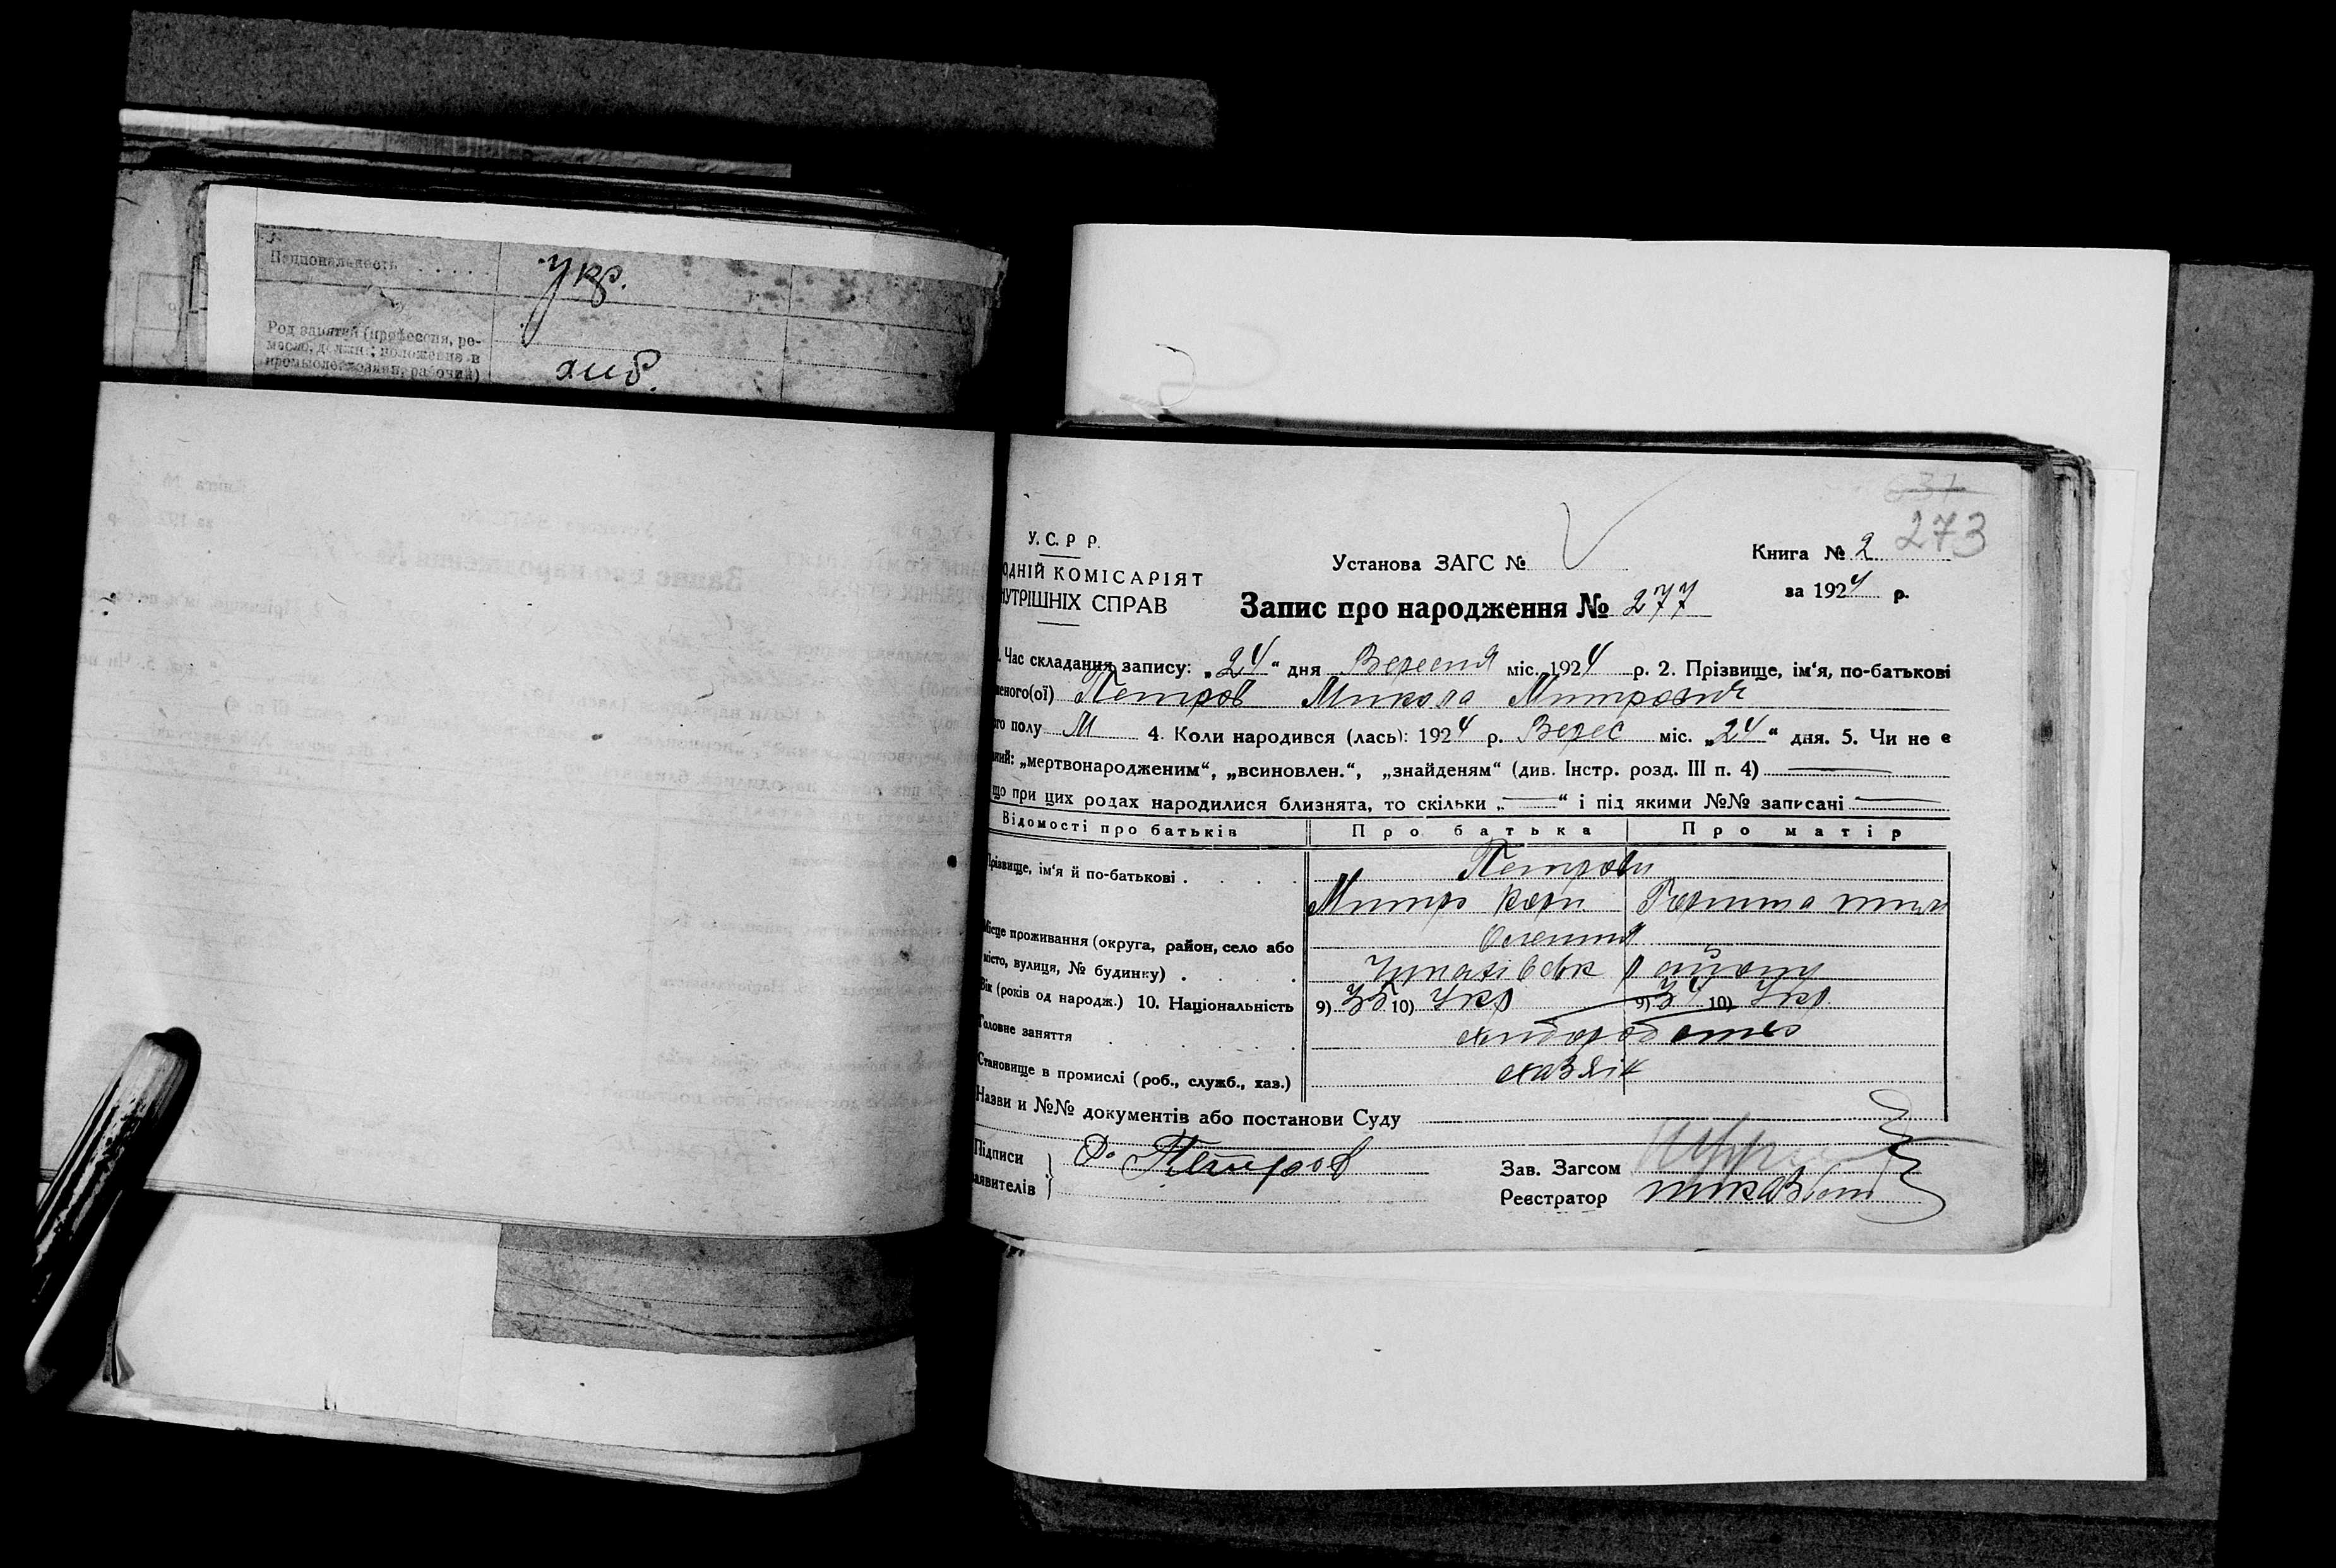 Национальность . . . . . укр.
Род занятий (профессия, ре-
месло, должн.; положение в
промысле: хозяин, рабочий)
хліб.
31
273
У. С. Р Р.
ОДНІЙ КОМІСАРІЯТ
НУТРІШНІХ СПРАВ
Установа ЗАГС №
Книга № 2
за 1924 р.
Запис про народження № 277
. Час складання запису: „24“ дня Вересня міс. 1924 р. 2. Прізвище, ім‘я, по-батькові
еного(ої) Петров Микола Митрович
го полу М 4. Коли народився (лась): 1924 р. Верес міс. „24“ дня. 5. Чи не є
ний: „мертвонародженим“, „всиновлен.“, „знайденям“ (див. Інстр. розд. III п. 4)
що при цих родах народилися близнята, то скільки „—“ і під якими №№ записані —
Відомості про батьків Про батька Про матір
Прізвище, ім‘я й по-батькові . . . . Петрови
Митро
Місце проживання (округа, район, село або
місто, вулиця, № будинку) . . району
Вік (років од народж.) 10. Національність 9) 35 10) Укр 9) 34 10) Укр.
Головне заняття
Становище в промислі (роб., служб., хаз.) хазяїн
Назви и №№ документів або постанови Суду
Підписи Петров
аявителів
Зав. Загсом
Реєстратор